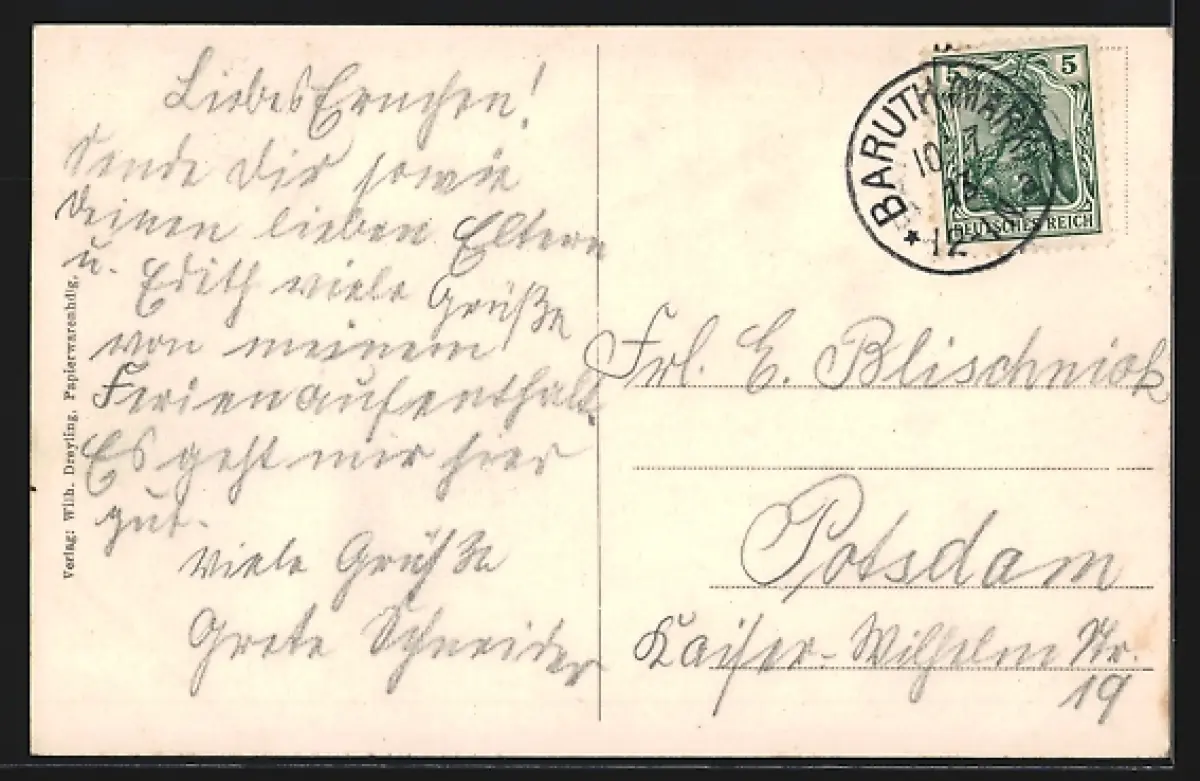 Liebes Ernchen!
Sende Dir sowie
Deinen lieben Eltern
u. Edith viele Grüße
von meinem
Ferienaufenthalt.
Es geht mir hier
gut.
Viele Grüße
Grete Schneider
Verlag: Wilh. Dreyling, Papierwarenhdlg.
5 5
DEUTSCHES REICH
BARUTH (MARK)
10.7.
12
Frl. E. Blischniok
Potsdam
Kaiser-Wilhelm Str.
19